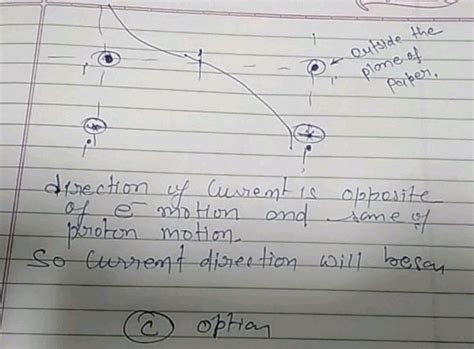 outside the
plane of
paper.
i
i
direction of current is opposite
of e⁻ motion and same of
proton motion.
So current direction will be
C option